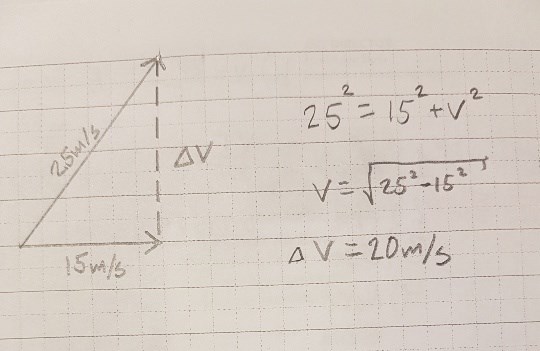 25m/s
ΔV
15m/s
25² = 15² + V²
V = √25² - 15²
ΔV = 20m/s